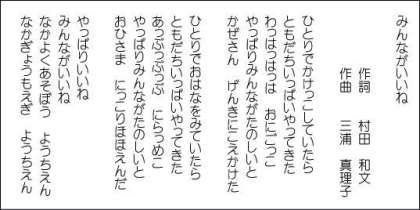 みんながいいね
作詞　村田　和文
作曲　三浦　真理子
ひとりでかけっこしていたら
ともだちいっぱいやってきた
わっはっはっは　おにごっこ
やっぱりみんながたのしいと
かぜさん　げんきにこえかけた
ひとりでおはなをみていたら
ともだちいっぱいやってきた
あっぷっぷっぷ　にらっめこ
やっぱりみんながたのしいと
おひさま　にっこりほほえんだ
やっぱりいいね
みんながいいね
なかよくあそぼう　ようちえん
なかぎょうもえぎ　ようちえん